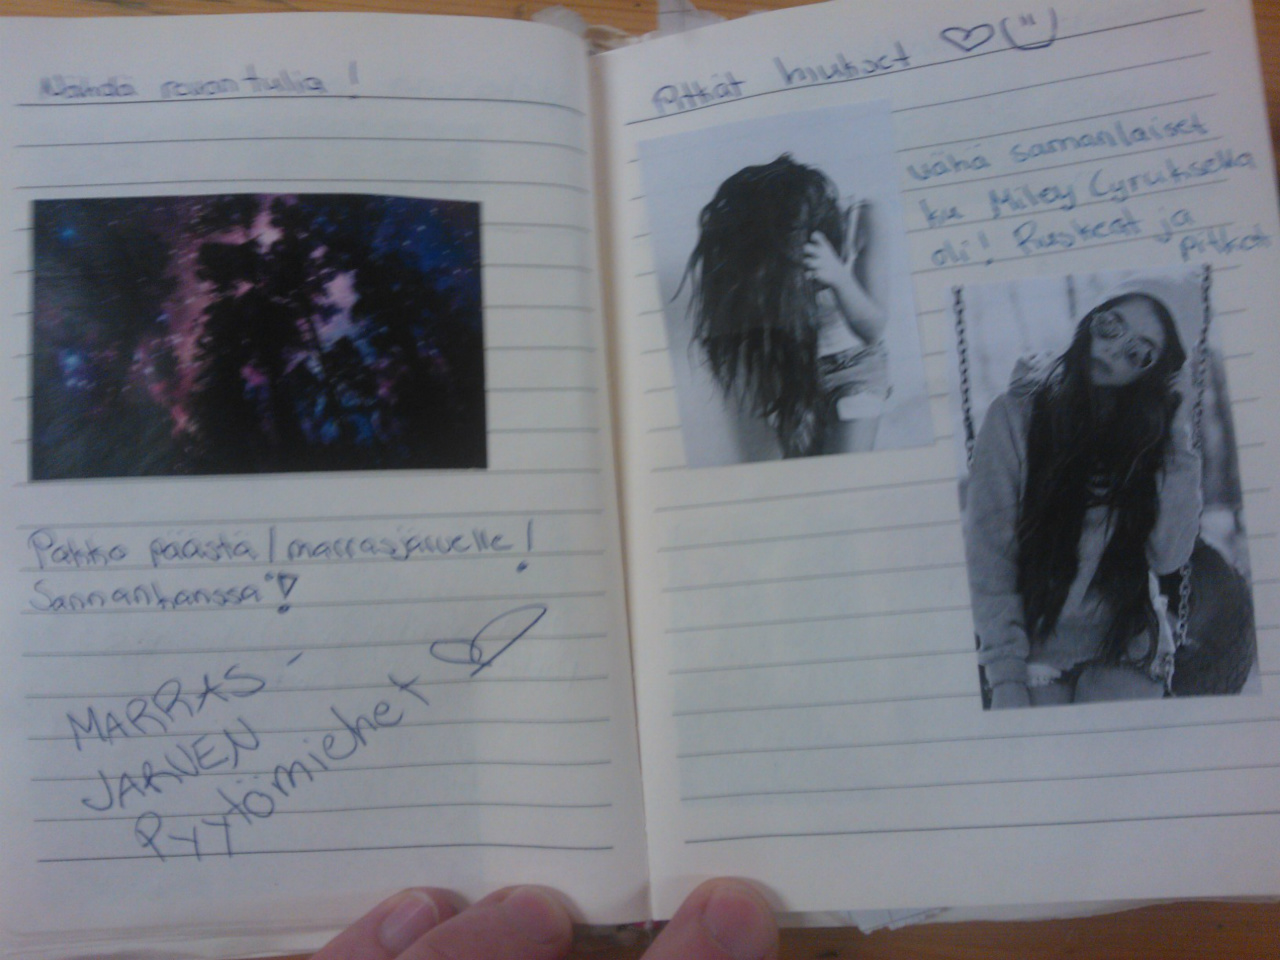 Nähdä revontulia!
Pakko päästä / marrasjärvelle!
Sannankanssa!
MARRAS-
JÄRVEN
Pyytömiehet
Pitkät hiukset
vähä samanlaiset
ku Miley Cyruksella
oli! Ruskeat ja
pitkät